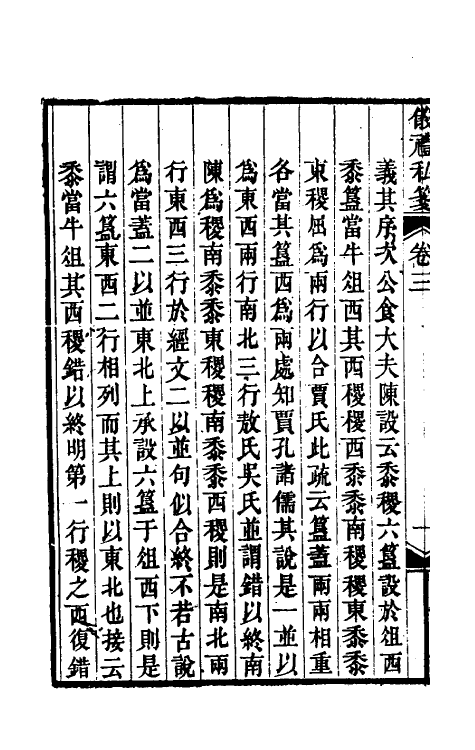 儀禮私箋 卷三 一
義其序次公食大夫陳設云黍稷六簋設於俎西
黍簋當牛俎西其西稷稷西黍黍南稷稷東黍黍
東稷屈爲兩行以合賈氏此疏云簋蓋兩兩相重
各當其簋西爲兩處知賈孔諸儒其說是一並以
爲東西兩行南北三行敖氏吳氏並謂錯以終南
陳爲稷南黍黍東稷稷南黍黍西稷則是南北兩
行東西三行於經文二以並句似合終不若古說
爲當蓋二以並東北上承設六簋于俎西下則是
謂六簋東西二行相列而其上則以東北也接云
黍當牛俎其西稷錯以終明第一行稷之西復錯